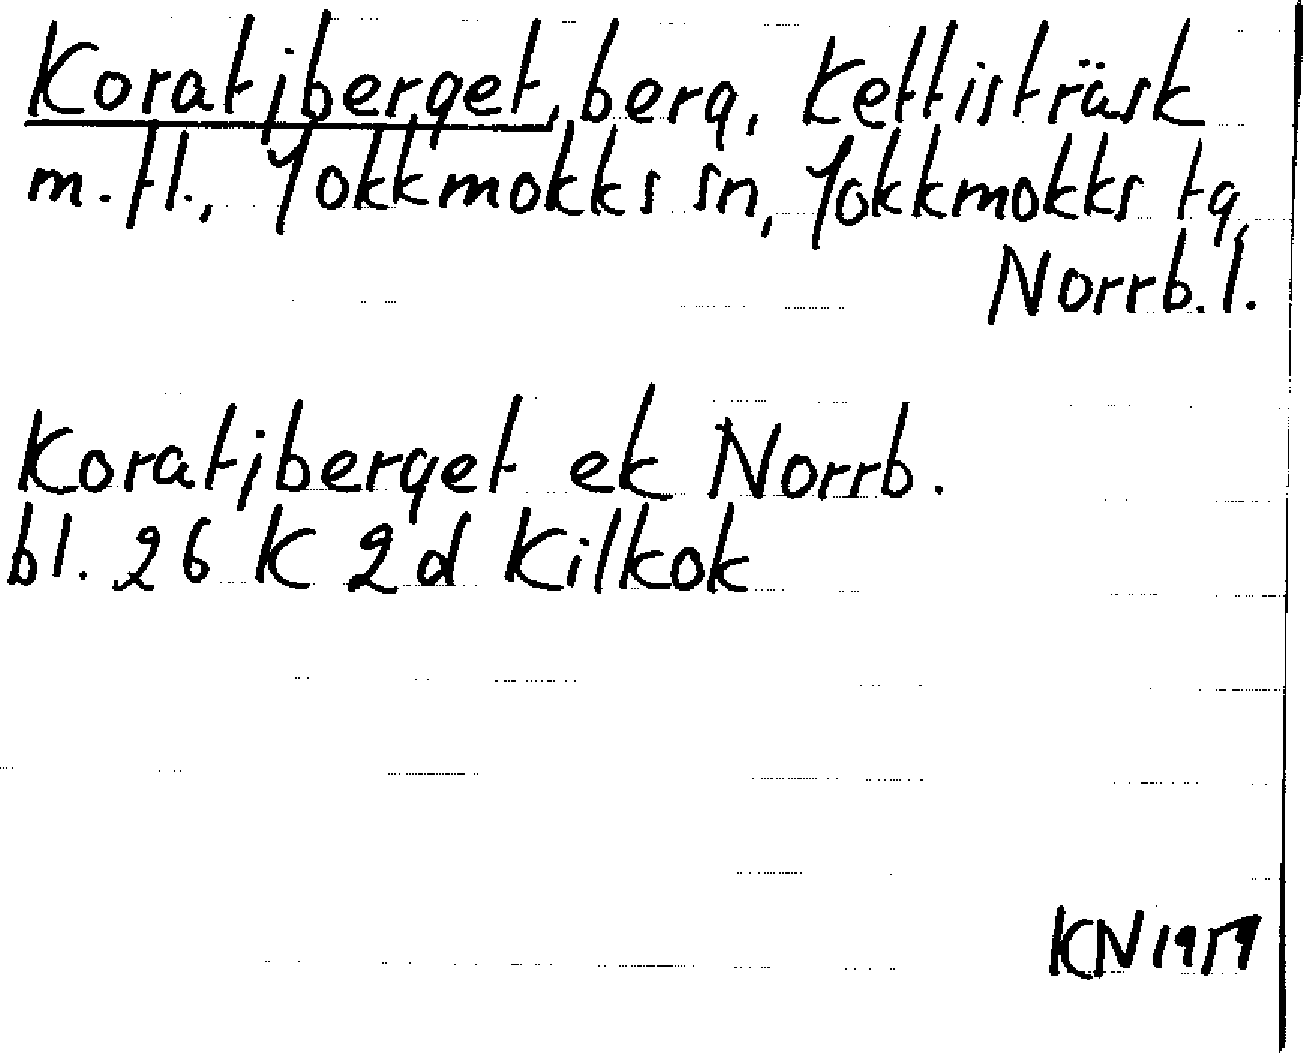 Koratjberget, berg, Kettisträsk
m.fl., Jokkmokks sn, Jokkmokks tg,
Norrb. l.
Koratjberget ek Norrb.
bl. 26 K 2d Kilkok
KN